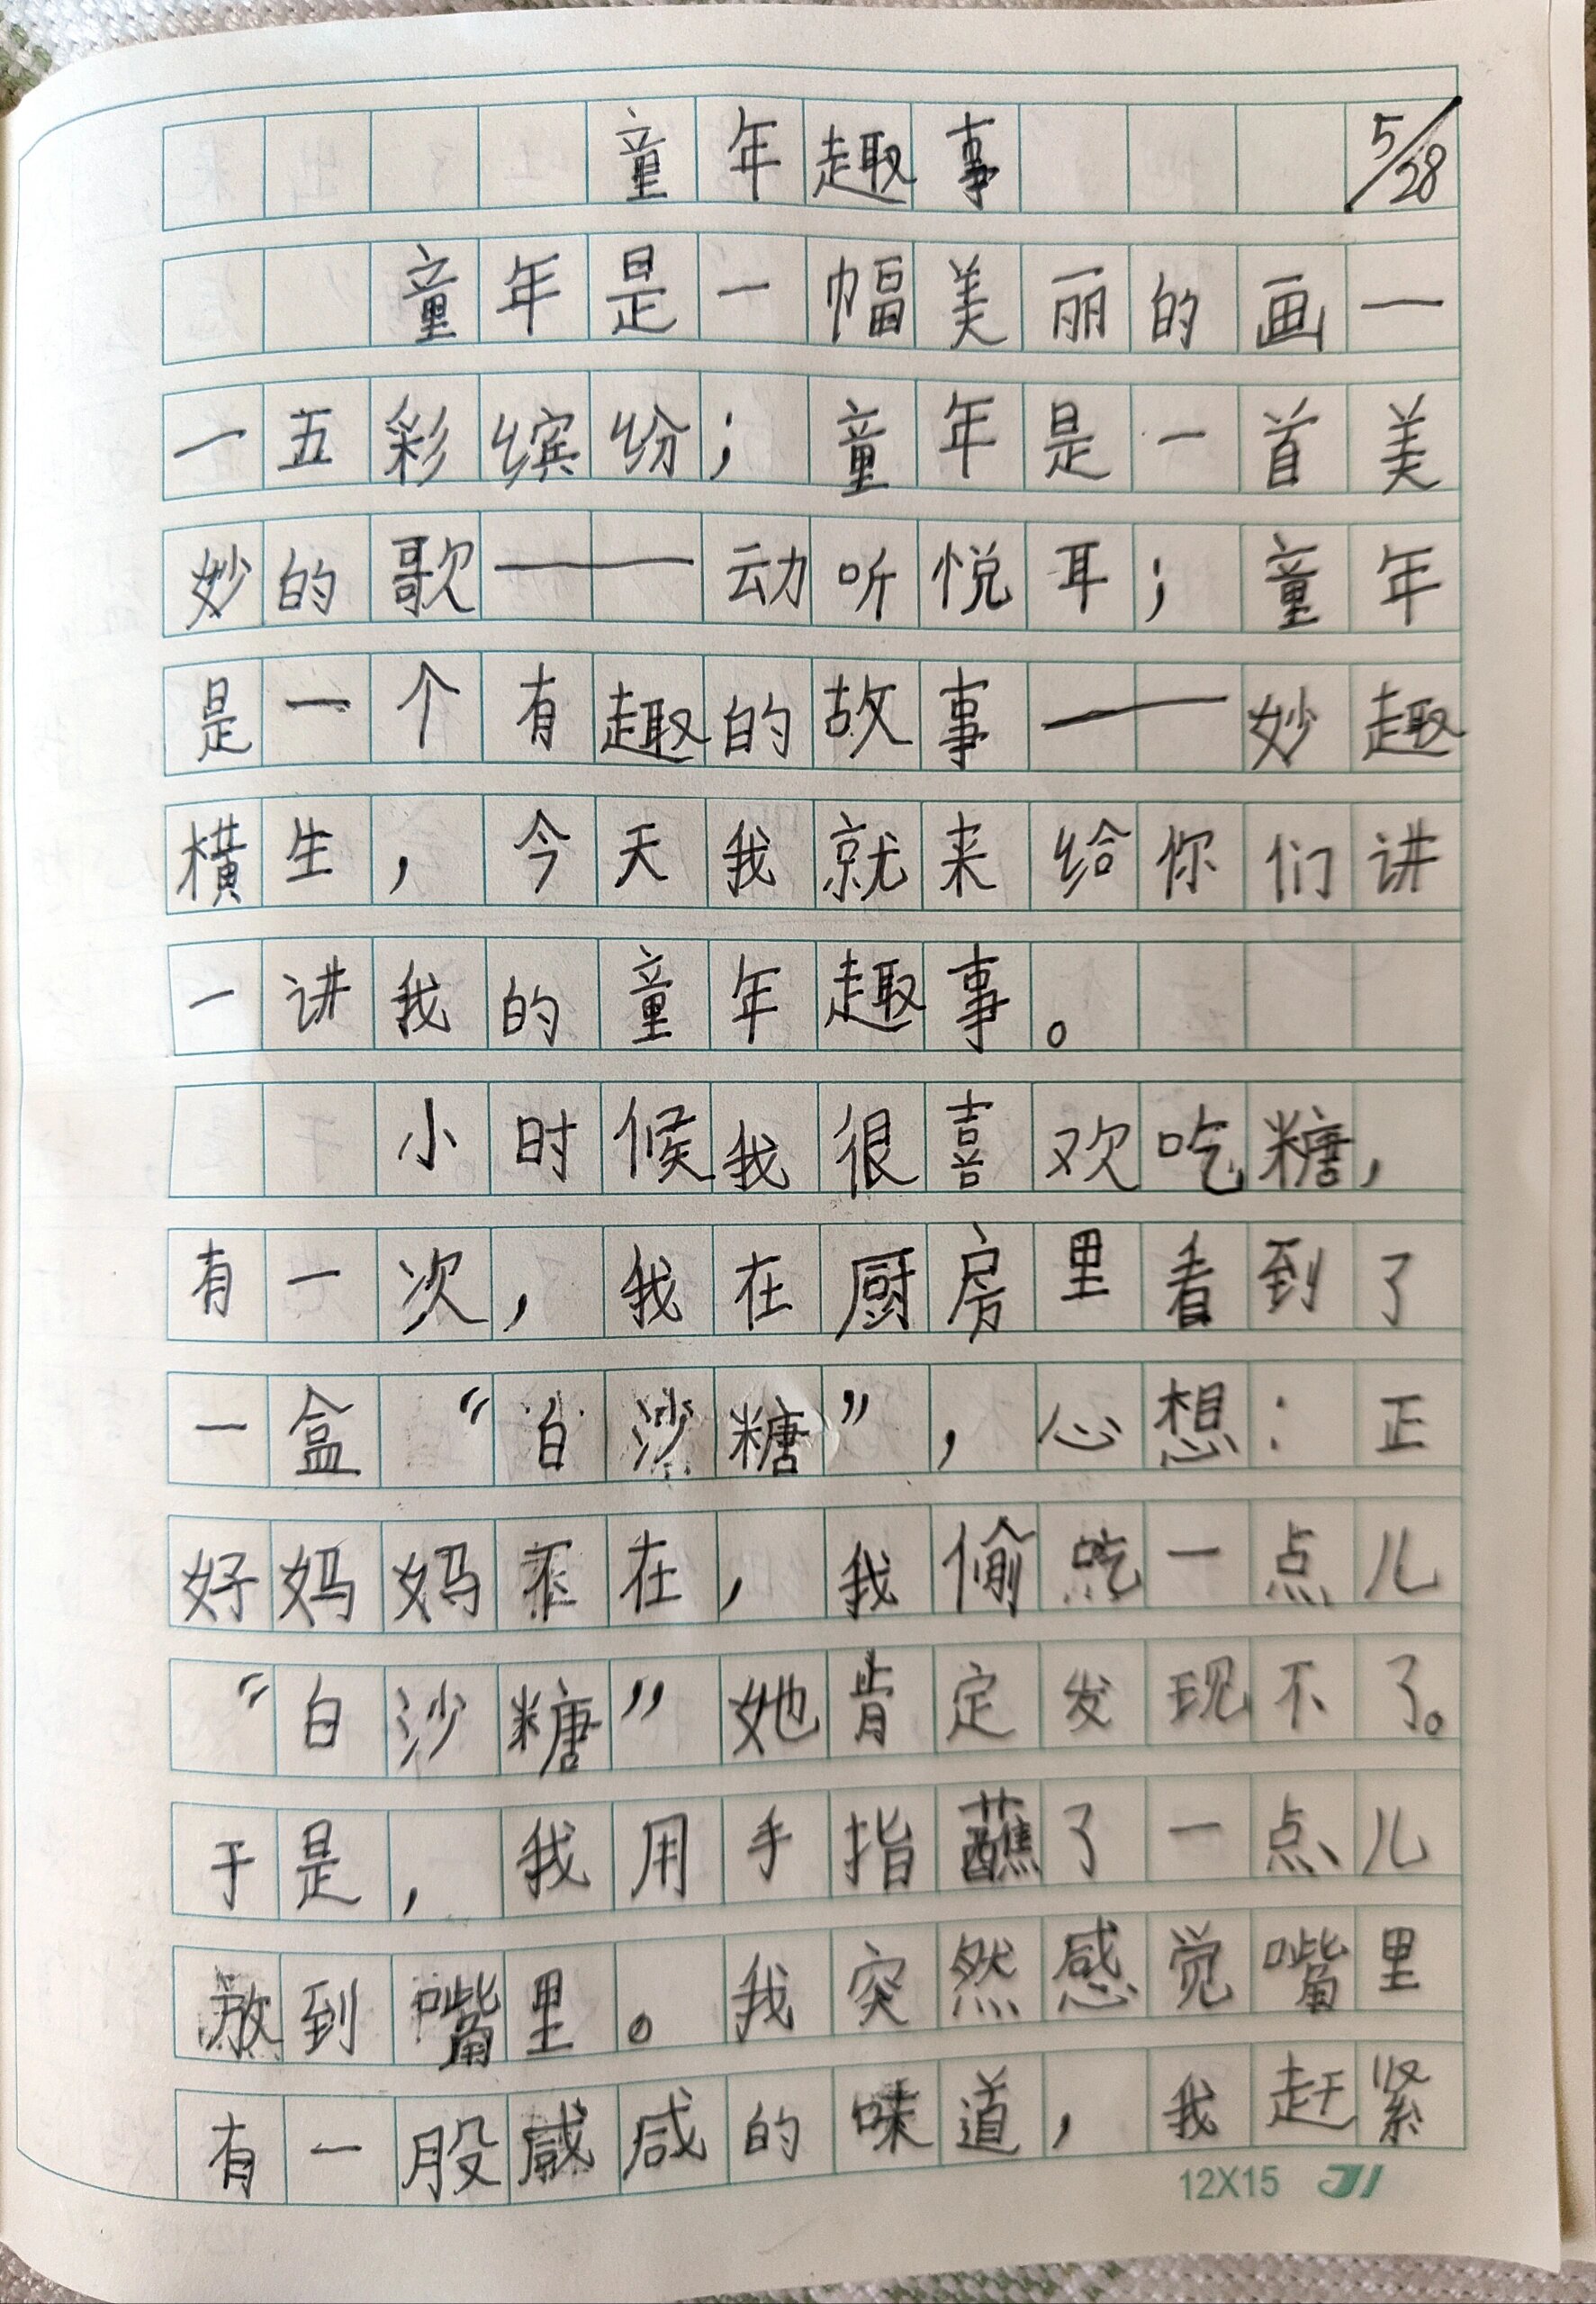 童年趣事 5/28
童年是一幅美丽的画—
—五彩缤纷；童年是一首美
妙的歌——动听悦耳；童年
是一个有趣的故事——妙趣
横生，今天我就来给你们讲
一讲我的童年趣事。
小时候我很喜欢吃糖，
有一次，我在厨房里看到了
一盒“白沙糖”，心想：正
好妈妈不在，我偷吃一点儿
“白沙糖”她肯定发现不了。
于是，我用手指蘸了一点儿
放到嘴里。我突然感觉嘴里
有一股咸咸的味道，我赶紧
12X15 JI